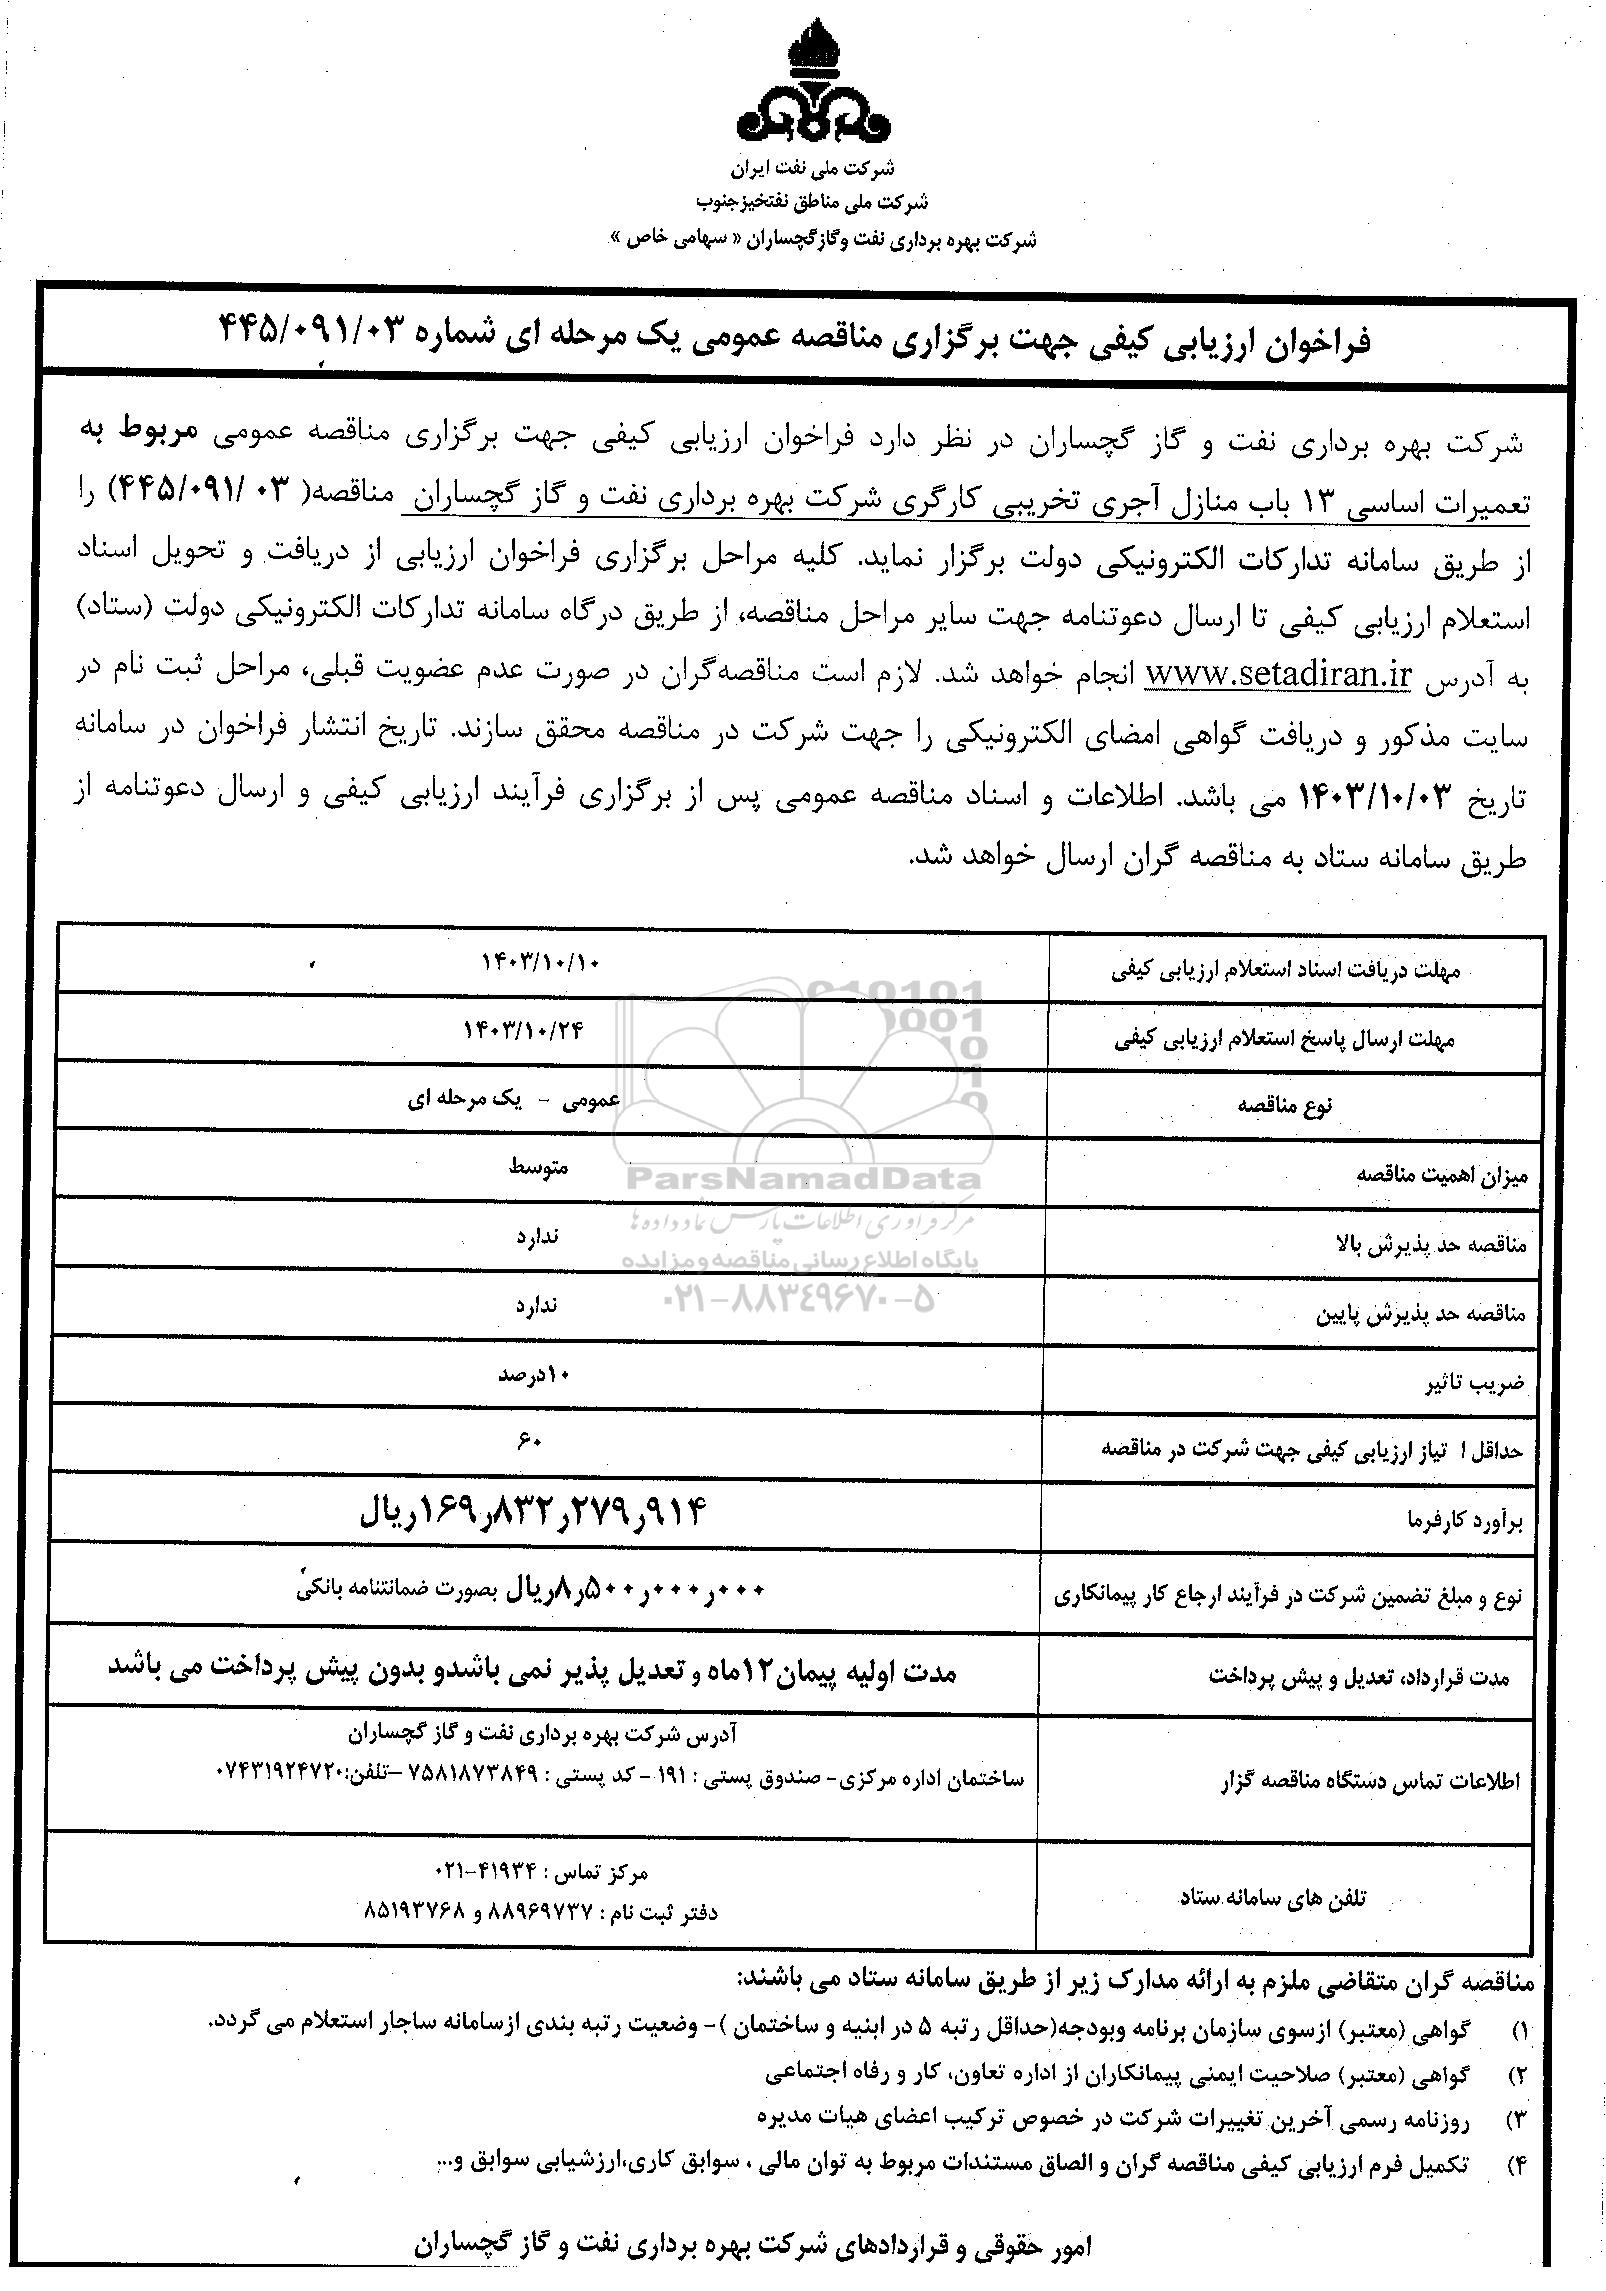 شرکت ملی نفت ایران
شرکت ملی مناطق نفتخیزجنوب
شرکت بهره برداری نفت وگازگچساران « سهامی خاص »
فراخوان ارزیابی کیفی جهت برگزاری مناقصه عمومی یک مرحله ای شماره ۴۴۵/۰۹۱/۰۳
شرکت بهره برداری نفت و گاز گچساران در نظر دارد فراخوان ارزیابی کیفی جهت برگزاری مناقصه عمومی مربوط به
تعمیرات اساسی ۱۳ باب منازل آجری تخریبی کارگری شرکت بهره برداری نفت و گاز گچساران مناقصه( ۰۳ /۴۴۵/۰۹۱) را
از طریق سامانه تدارکات الکترونیکی دولت برگزار نماید. کلیه مراحل برگزاری فراخوان ارزیابی از دریافت و تحویل اسناد
استعلام ارزیابی کیفی تا ارسال دعوتنامه جهت سایر مراحل مناقصه، از طریق درگاه سامانه تدارکات الکترونیکی دولت (ستاد)
به آدرس www.setadiran.ir انجام خواهد شد. لازم است مناقصه‌گران در صورت عدم عضویت قبلی، مراحل ثبت نام در
سایت مذکور و دریافت گواهی امضای الکترونیکی را جهت شرکت در مناقصه محقق سازند. تاریخ انتشار فراخوان در سامانه
تاریخ ۱۴۰۳/۱۰/۰۳ می باشد. اطلاعات و اسناد مناقصه عمومی پس از برگزاری فرآیند ارزیابی کیفی و ارسال دعوتنامه از
طریق سامانه ستاد به مناقصه گران ارسال خواهد شد.
مهلت دریافت اسناد استعلام ارزیابی کیفی ۱۴۰۳/۱۰/۱۰
مهلت ارسال پاسخ استعلام ارزیابی کیفی ۱۴۰۳/۱۰/۲۴
نوع مناقصه عمومی - یک مرحله ای
میزان اهمیت مناقصه متوسط
مناقصه حد پذیرش بالا ندارد
مناقصه حد پذیرش پایین ندارد
ضریب تاثیر ۱۰درصد
حداقل ا تیاز ارزیابی کیفی جهت شرکت در مناقصه ۶۰
برآورد کارفرما ۱۶۹ر۸۳۲ر۲۷۹ر۹۱۴ریال
نوع و مبلغ تضمین شرکت در فرآیند ارجاع کار پیمانکاری ۸ر۵۰۰ر۰۰۰ر۰۰۰ریال بصورت ضمانتنامه بانکی
مدت قرارداد، تعدیل و پیش پرداخت مدت اولیه پیمان۱۲ماه و تعدیل پذیر نمی باشدو بدون پیش پرداخت می باشد
آدرس شرکت بهره برداری نفت و گاز گچساران
اطلاعات تماس دستگاه مناقصه گزار ساختمان اداره مرکزی- صندوق پستی : ۱۹۱ - کد پستی : ۷۵۸۱۸۷۳۸۴۹ –تلفن:۰۷۴۳۱۹۲۴۷۲۰
مرکز تماس : ۴۱۹۳۴-۰۲۱
تلفن های سامانه ستاد
دفتر ثبت نام : ۸۸۹۶۹۷۳۷ و ۸۵۱۹۳۷۶۸
ParsNamadData
مرکز فرآوری اطلاعات پارس نماد داده‌ها
پایگاه اطلاع رسانی مناقصه و مزایده
۰۲۱-۸۸۳۴۹۶۷۰-۵
مناقصه گران متقاضی ملزم به ارائه مدارک زیر از طریق سامانه ستاد می باشند:
۱) گواهی (معتبر) ازسوی سازمان برنامه وبودجه(حداقل رتبه ۵ در ابنیه و ساختمان )- وضعیت رتبه بندی ازسامانه ساجار استعلام می گردد.
۲) گواهی (معتبر) صلاحیت ایمنی پیمانکاران از اداره تعاون، کار و رفاه اجتماعی
۳) روزنامه رسمی آخرین تغییرات شرکت در خصوص ترکیب اعضای هیات مدیره
۴) تکمیل فرم ارزیابی کیفی مناقصه گران و الصاق مستندات مربوط به توان مالی ، سوابق کاری،ارزشیابی سوابق و...
امور حقوقی و قراردادهای شرکت بهره برداری نفت و گاز گچساران